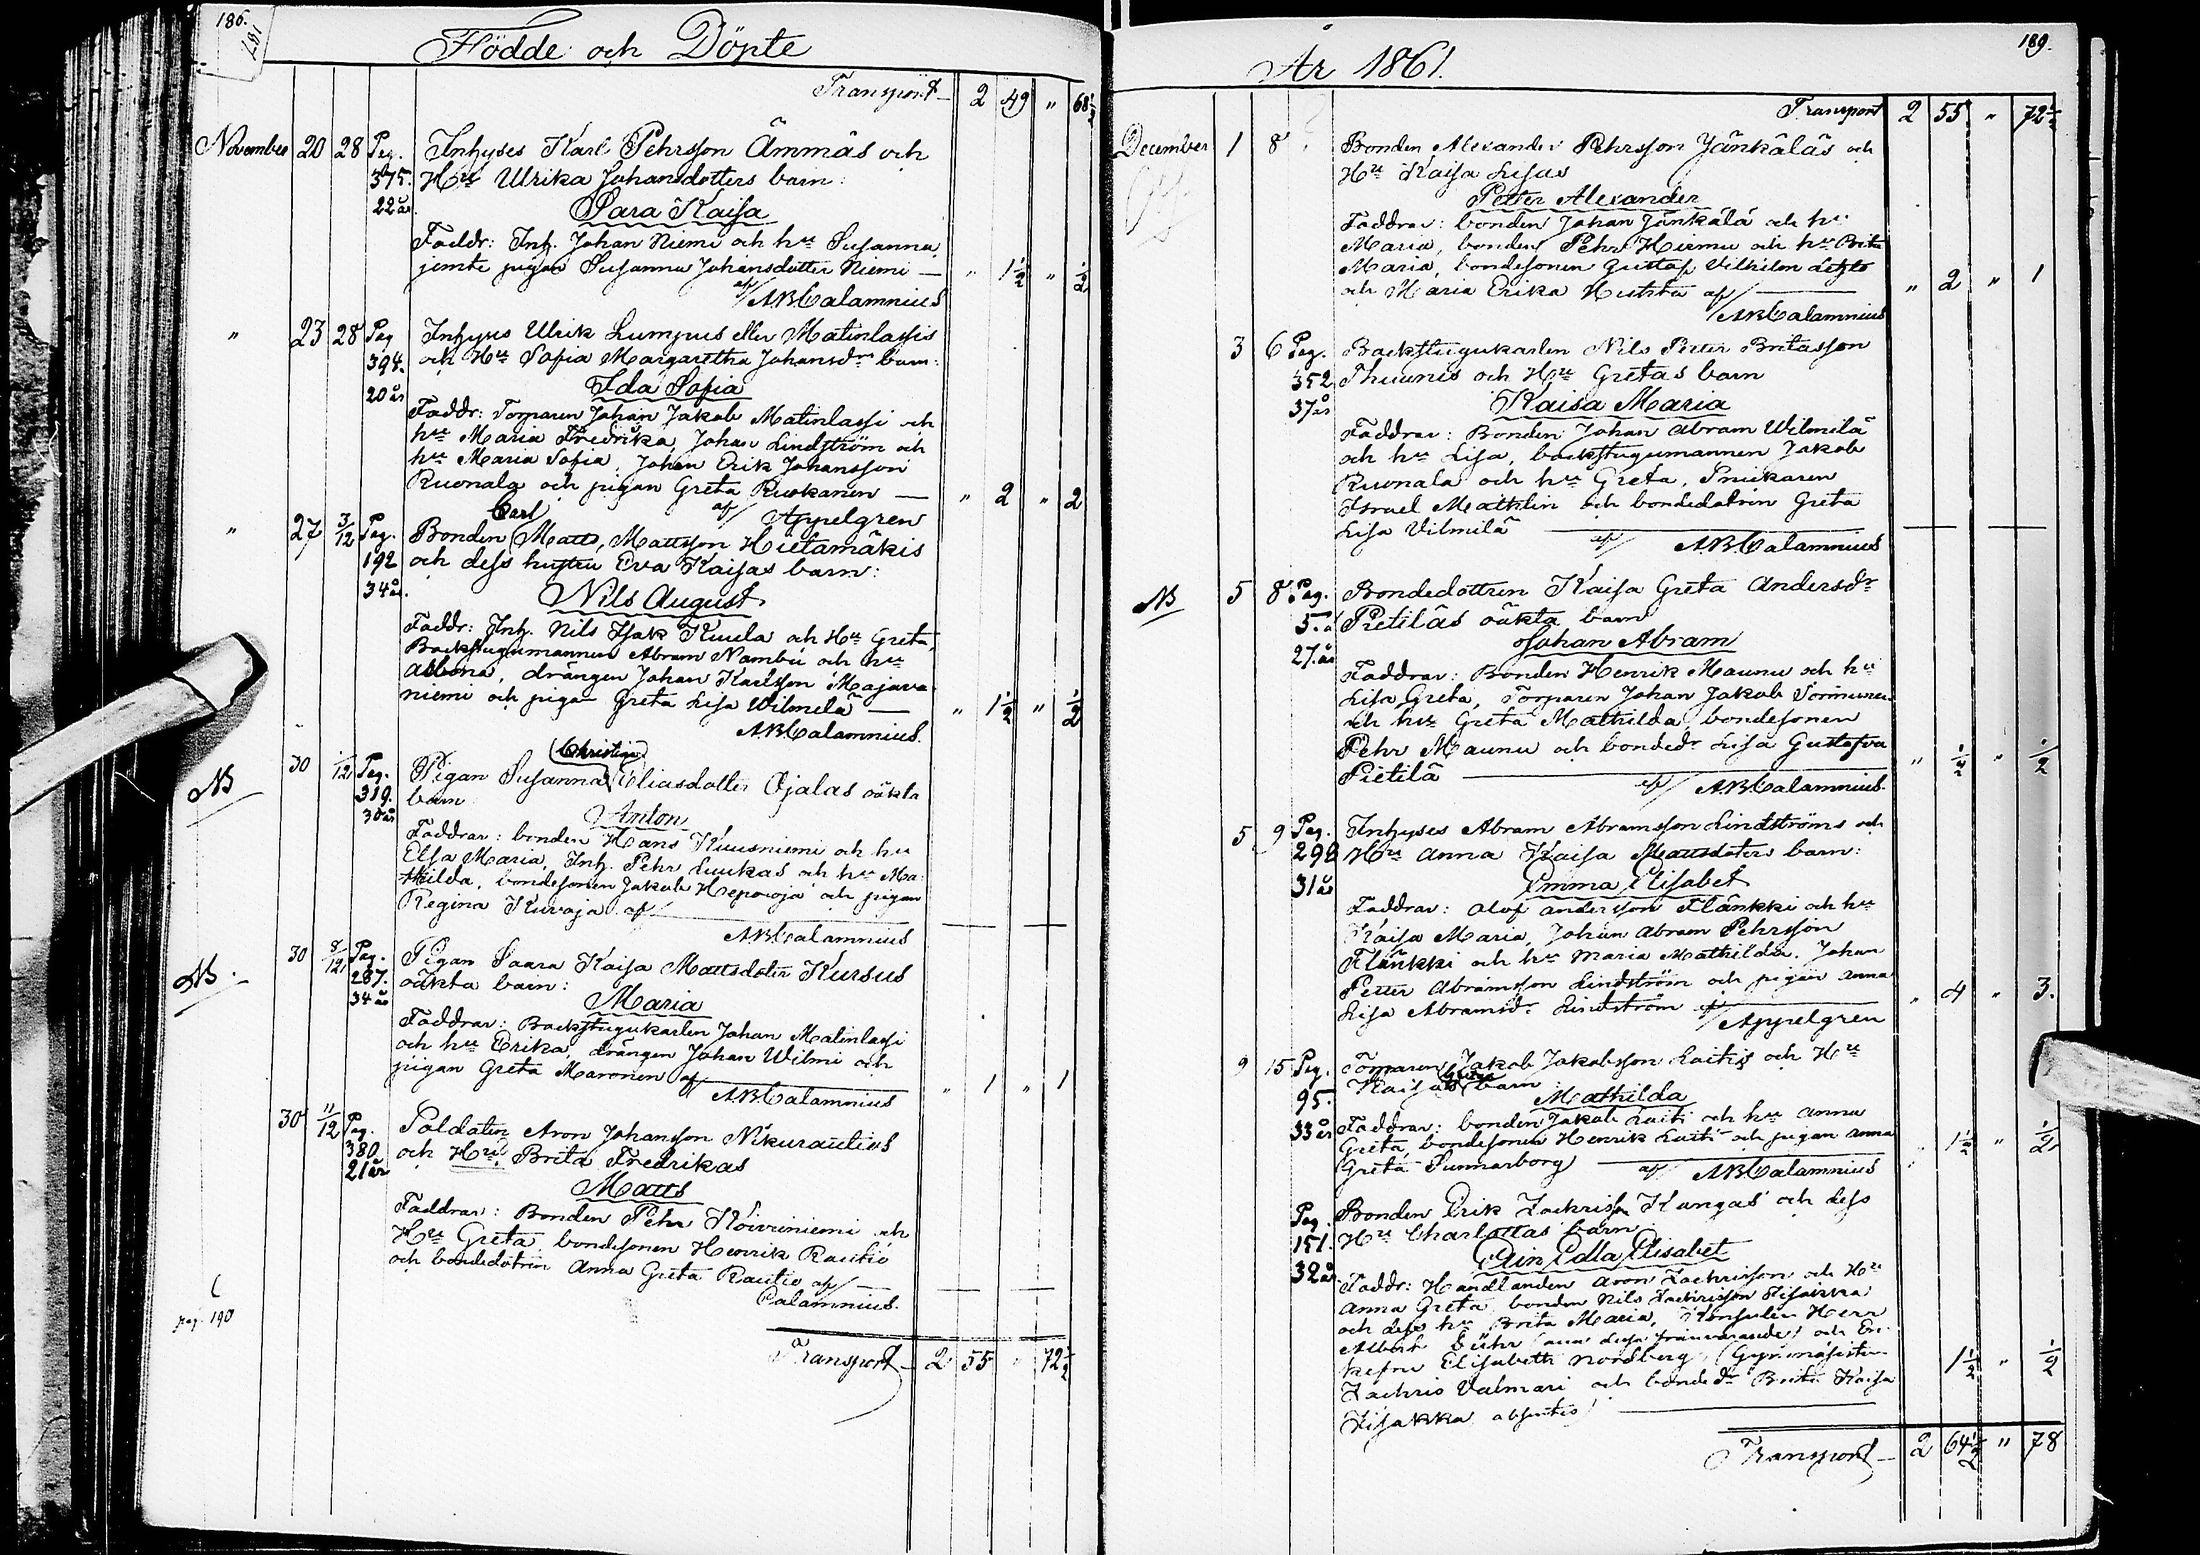 186.
187
Födde och Döpte
Transport 2 49 " 68½
November 20 28 Pag. Inhyses Karl Pehrsson Ämmäs och
375. Hu Ulrika Johansdotters barn:
22 år Sara Kaisa
Faddr: Inh. Johan Niemi och hu Susanna,
jemte pigan Susanna Johansdotter Niemi — " 1½ " ½
af/ A.B. Calamnius
" 23 28 Pag Inhyses Ulrik Lumpus eller Matinlassis
394. och Hu Sofia Margaretha Johansdr barn:
20 år Ida Sofia
Faddr: Torparen Johan Jakob Matinlassi och
hu Maria Fredrika, Johan Lindström och
hu Maria Sofia, Johan Erik Johansson
Ruonala och pigan Greta Ruokanen — " 2 " 2
af/ Appelgren
Carl
" 27 3/12 Pag. Bonden Matts, Mattsson Hietamäkis
192 och dess hustru Eva Kaisas barn:
34 år. Nils August
Faddr: Inh. Nils Isak Kuula och Hu Greta,
Backstugumannen Abram Nambu och hu
Albina, drängen Johan Karlsson Majava
niemi och piga Greta Lisa Wilmilä — " 1½ " ½
A.B. Calamnius.
Christina
NB 30 1/12 Pag. Pigan Susanna Eliasdotter Ojalas oäkta
319. barn
30 år Anton
Faddrar: bonden Hans Kuusniemi och hu
Elsa Maria, Inh. Pehr Luukas och hu Ma-
thilda, bondesonen Jakob Hepooja och pigan
Regina Kuroja af/
A.B. Calamnius
NB. 30 8/12 Pag. Pigan Saara Kaisa Mattsdotter Kursus
287. oäkta barn:
34 år Maria
Faddrar: Backstugukarlen Johan Matinlassi
och hu Erika, drängen Johan Wilmi och
pigan Greta Maronen af " 1 " 1
A.B. Calamnius
30 11/12 Pag. Soldaten Aron Johansson Nikurautios
380 och Hu Brita Fredrikas
21 år Matts
Faddrar: Bonden Pehr Koivuniemi och
Hu Greta, bondesonen Henrik Rautio
och bondedotren Anna Greta Rautio af/ —
Calamnius.
pag. 190
Transport 2 55 " 72½
189.
År 1861.
Transport 2 55 " 72½
December 1 8 Bonden Alexander Pehrsson Jänkäläs och
Hu Kaisa Lisas
Petter Alexander
Faddrar: bonden Johan Jänkälä och hu
Maria, bonden Pehr Hiemu och hu Brita
Maria, bondesonen Gustaf Vilhelm
och Maria Erika af/ — " 2 " 1
A.B. Calamnius
3 6 Pag. Backstugukarlen Nils Petter Britasson
352 Thuunes och Hu Gretas barn
37 år Kaisa Maria
Faddrar: Bonden Johan Abram Wilmilä
och hu Lisa, backstugumannen Jakob
Ruonala och hu Greta, Snickaren
Israel Mathlin och bondedotrin Greta
Lisa Vilmilä
af/ A.B. Calamnius
NB 5 8 Pag. Bondedottren Kaisa Greta Andersdr
5. Pietiläs oäkta barn
27. år Johan Abram
Faddrar: Bonden Henrik Maunu och hu
Lisa Greta, Torparen Johan Jakob Sormunen
och hu Greta Mathilda bondesonen
Pehr Maunu och bondedr Lisa Gustafva
Pietilä " ½ " ½
af/ A.B. Calamnius.
5 9 Pag. Inhyses Abram Abramsson Lindströms och
298 Hu Anna Kaisa Mattsdoters barn:
31 år Emma Elisabet
Faddrar: Olof Andersson Flänkki och hu
Kaisa Maria, Johan Abram Pehrsson
Flänkki och hu Maria Mathilda, Johan
Petter Abramsson Lindström och pigan Anna
Lisa Abramsdr Lindström af " 4 " 3.
Appelgren
9 15 Pag. Torparen Jakob Jakobsson Laitis och Hu
95. Kaisas Greta barn
Mathilda
33 år Faddrar: bonden Jakob Laiti och hu Anna
Greta, bondesonen Henrik Laiti och pigan Anna " 1½ " ½
Greta Sunnarborg — af/ A.B. Calamnius
Pag. Bonden Erik Zachriss. Kangas och dess
151. Hu Charlottas barn
32 år Elin Edla Elisabet
Faddr: Handlanden Aron Zachrisson och Hu
Anna Greta, bonden Nils Zachrisson Kisakka
och dess hu Brita Maria, Konsulen Herr
Albert och En-
kefru Elisabeth Nordberg, (Gymnasisten
Zachris Valmari och bondedr Brita Kaisa 1½ " ½
absentes)
Transport — 2 64½ " 78